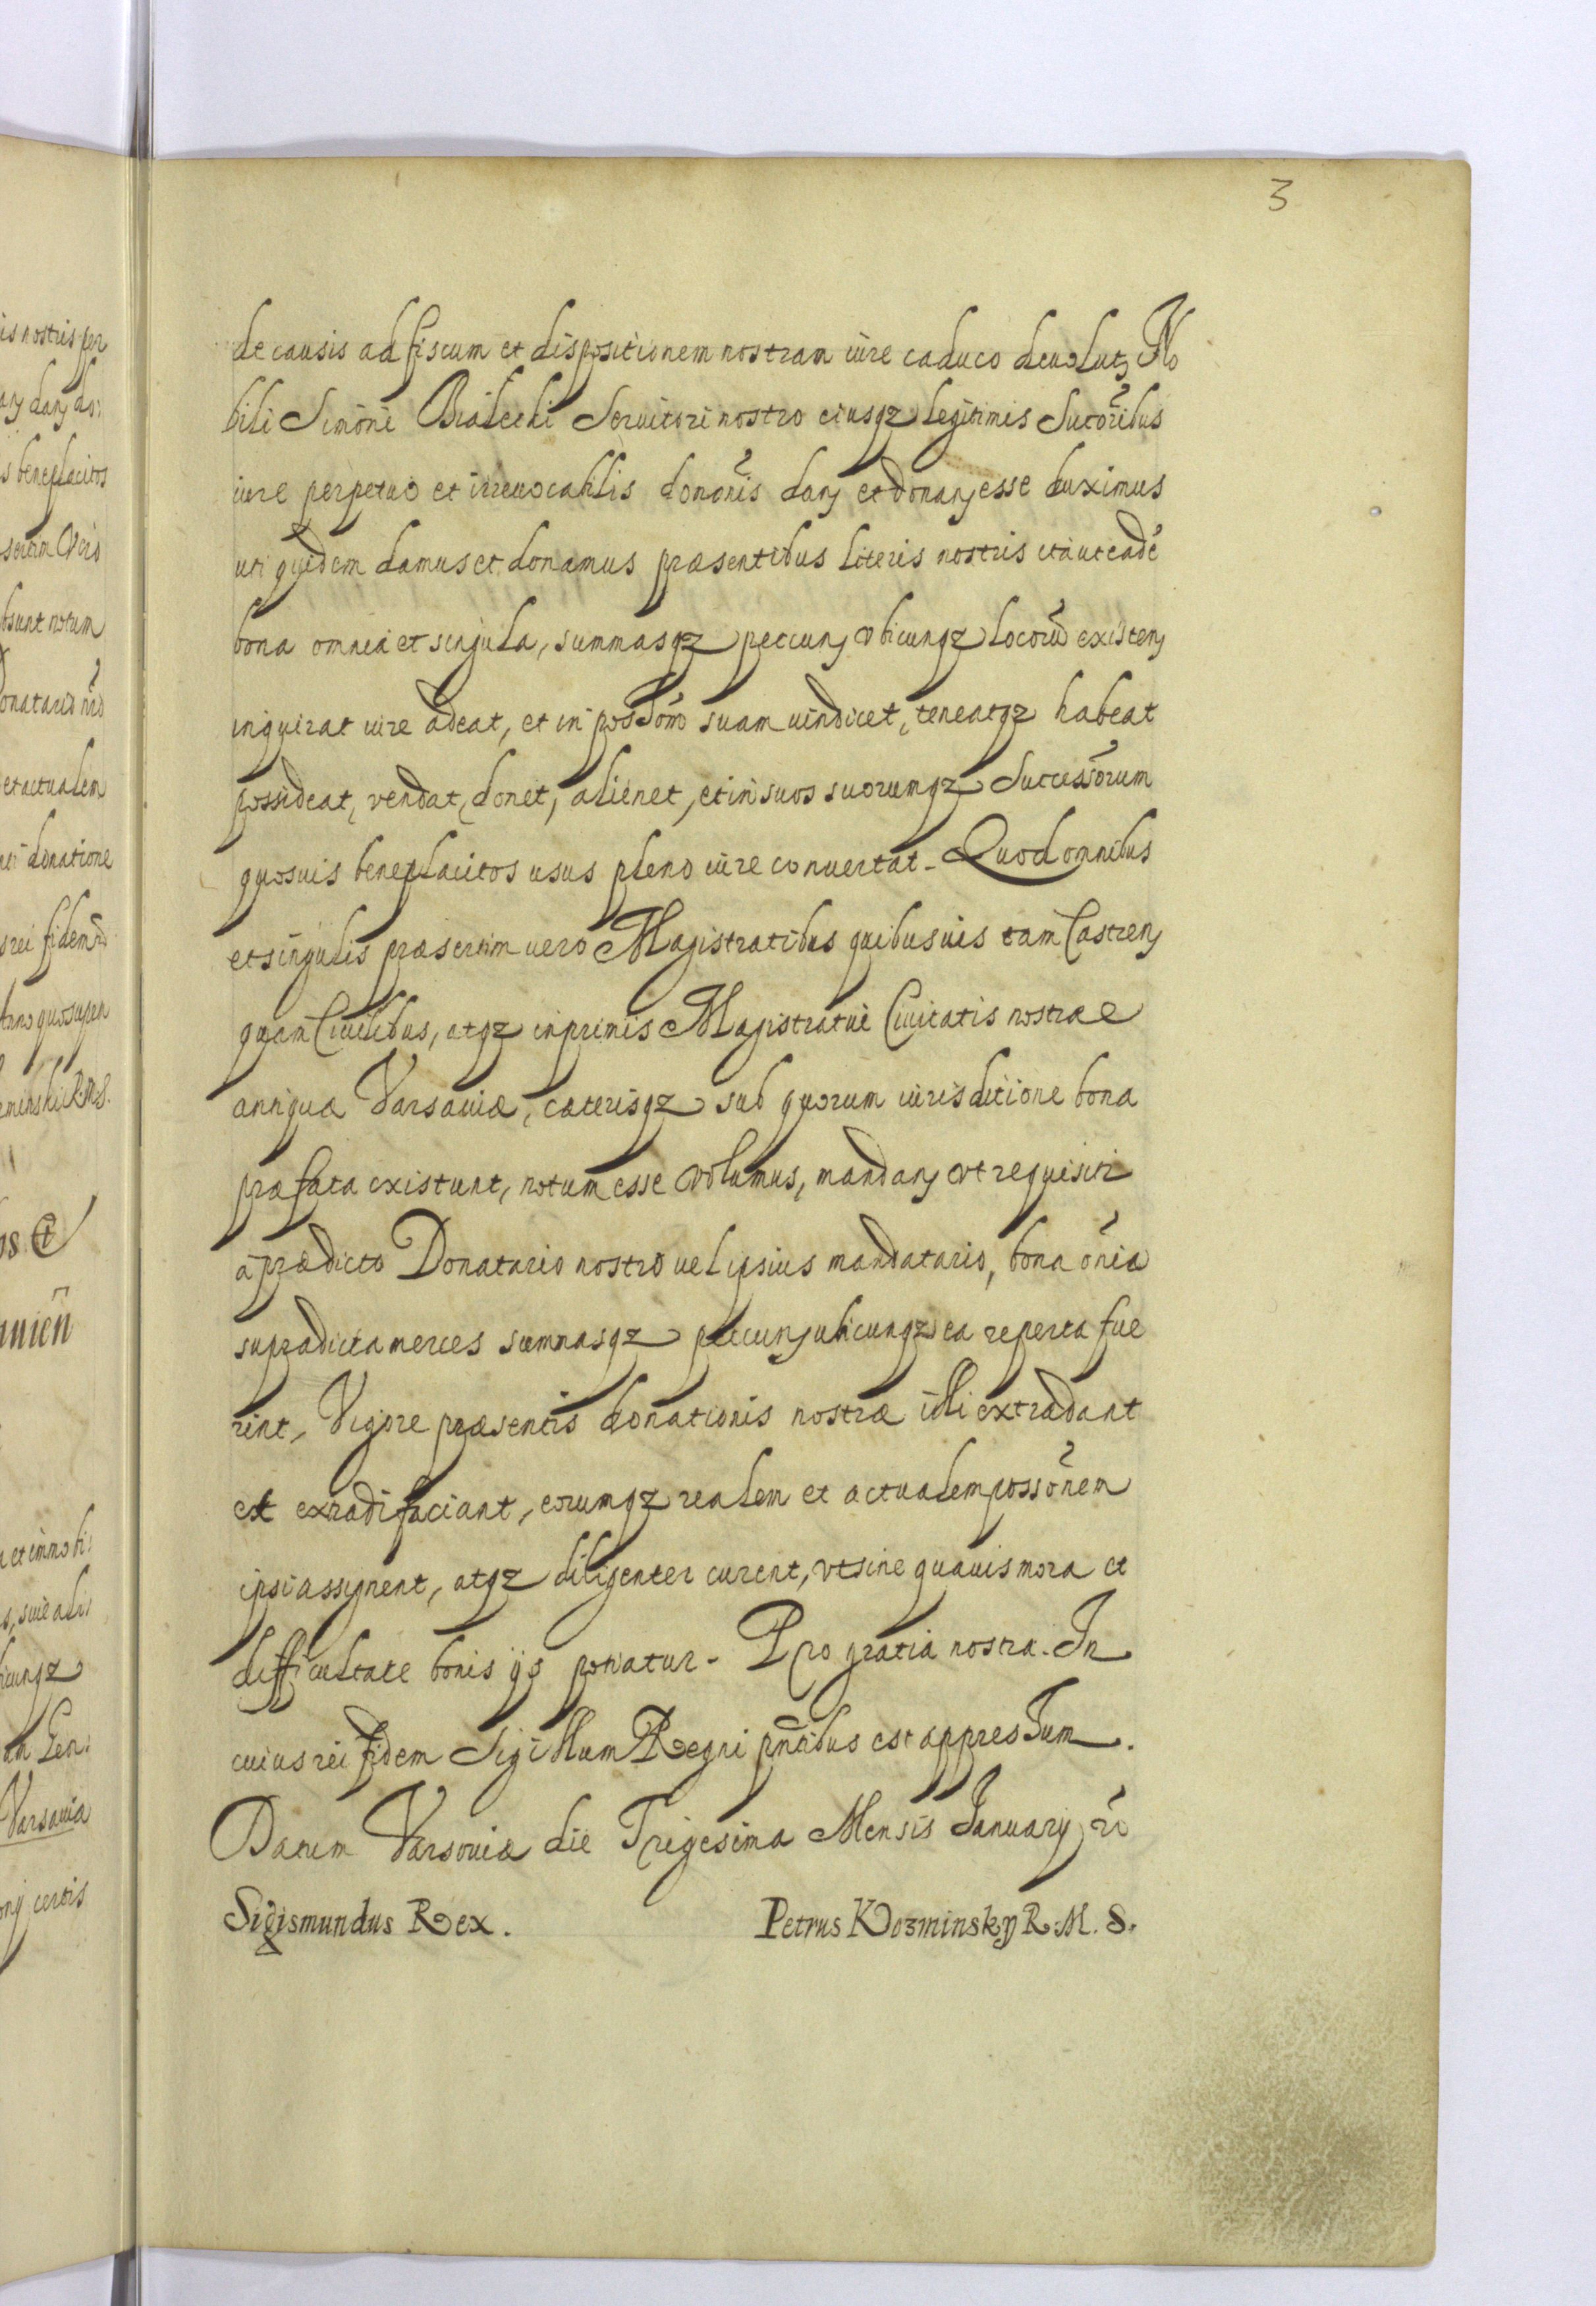 3
de causis ad fiscum et dispositionem nostram iure caduco deuolut, No
bili Simoni Białecki Seruitori nostro eiusqz legitimis Sucõribus
iure perpetuo et irreuocabilis donõnis dan, et donan, esse duximus
uti quidem damus et donamus præsentibus literis nostris ita ut eadē
bona omnia et singula, summasqz peccun, vbicunqz locorū existen,
inquirat iure adeat, et in possõm suam uindicet, teneatqz habeat
possideat, vendat, donet, alienet, et in suos suorumqz Successorum
quosuis beneplacitos usus pleno iure conuertat. Quod omnibus
et singulis præsertim uero Magistratibus quibusuis tam Castren,
quam Ciuilibus, atqz inprimis Magistratui Ciuitatis nostræ
antiqua Varsauiæ, cæterisqz sub quorum iurisditione bona
præfata existunt, notum esse volumus, mandan, vt requisiti
a prædicto Donatario nostro uel ipsius mandatario, bona õnia
supradicta merces summasqz peccun, ubicunqz ea reperta fue
rint, Vigore præsentis donationis nostræ illi extradant
et exradi faciant, eorumqz realem et actualem possõnem
ipsi assignent, atqz diligenter curent, vt sine quauis mora et
difficultate bonis ijs potiatur. Pro gratia nostra. In
cuius rei fidem Sigillum Regni pñtibus est appressum.
Datum Varsouiæ die Trigesima Mensis January, rõ
Sigismundus Rex. Petrus Kozminsky R. M. S.